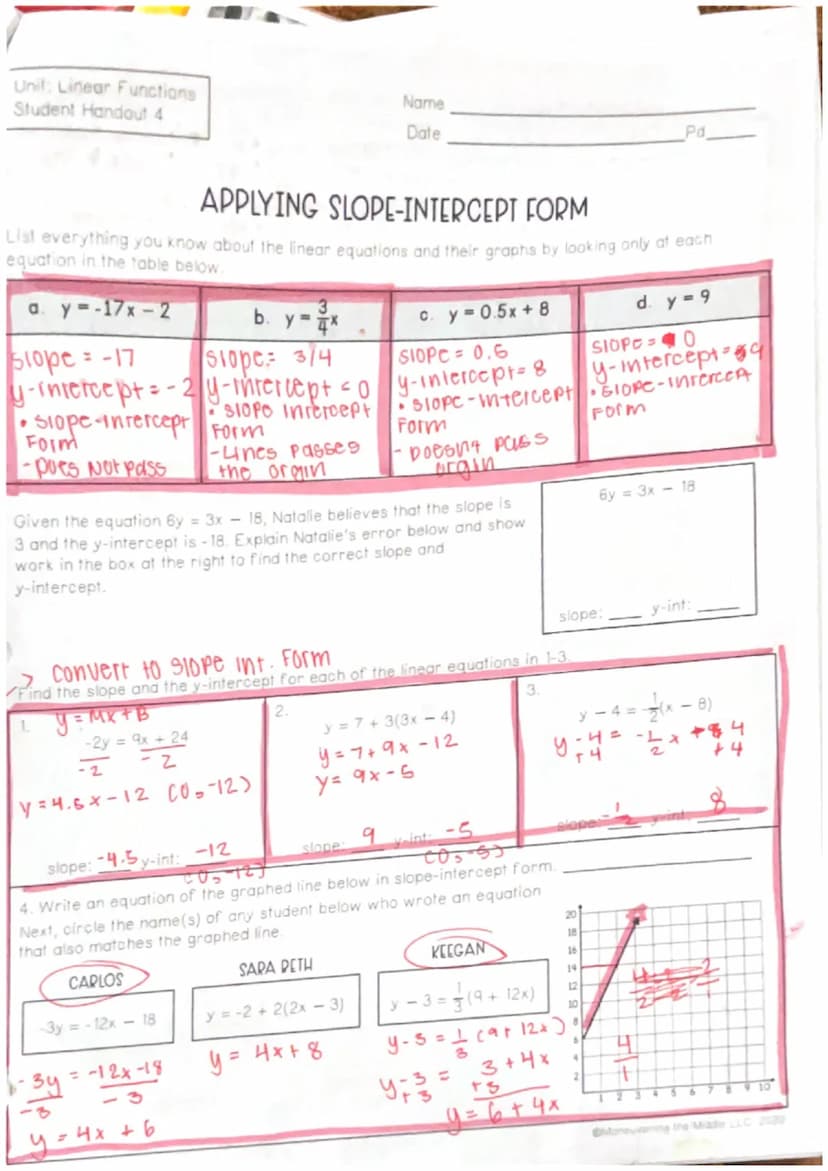 Unit: Linear Functions
Student Handout 4
Name
Date
Pd
APPLYING SLOPE-INTERCEPT FORM
List everything you know about the linear equations and their graphs by looking only at each
equation in the table below.
a. y = -17x – 2
slope = -17
y-intercept = -2
• slope-intercept
Form
- Does Not pass
b. y = 3/4 x
slope = 3/4
y-intercept = 0
• slope intercept
Form
- Lines passes
the orgin
c. y = 0.5x + 8
slope = 0.5
y-intercept = 8
• slope-intercept
Form
- Doesnt pass
orgin
d. y = 9
slope = 0
y-intercept = 9
• slope-intercept
Form
Given the equation 6y = 3x – 18, Natalie believes that the slope is
3 and the y-intercept is -18. Explain Natalie's error below and show
work in the box at the right to find the correct slope and
y-intercept.
6y = 3x – 18
slope: ____ y-int: ____
> convert to slope int. Form
Find the slope and the y-intercept for each of the linear equations in 1-3.
1.
y = Mx + B
-2y = 9x + 24
-2 -2
y = 4.5x - 12 (0,-12)
slope: -4.5 y-int: -12
(0,-12)
2.
y = 7 + 3(3x – 4)
y = 7 + 9x - 12
y = 9x - 5
slope: 9 y-int: -5
(0,-5)
3.
y – 4 = -1/2(x – 8)
y - 4 = -1/2 x + 4
+4 +4
slope: -1/2 y-int: 8
4. Write an equation of the graphed line below in slope-intercept form.
Next, circle the name(s) of any student below who wrote an equation
that also matches the graphed line.
CARLOS
-3y = -12x – 18
-3y = -12x - 18
-3 -3
y = 4x + 6
SARA BETH
y = -2 + 2(2x – 3)
y = 4x + 8
KEEGAN
y – 3 = 1/3(9 + 12x)
y - 3 = 1/3 (9 + 12x)
y - 3 = 3 + 4x
+3 +3
y = 6 + 4x
20
18
16
14
12
10
8
6
4
2
4/1
1 2 3 4 5 6 7 8 9 10
©Maneuvering the Middle LLC, 2020